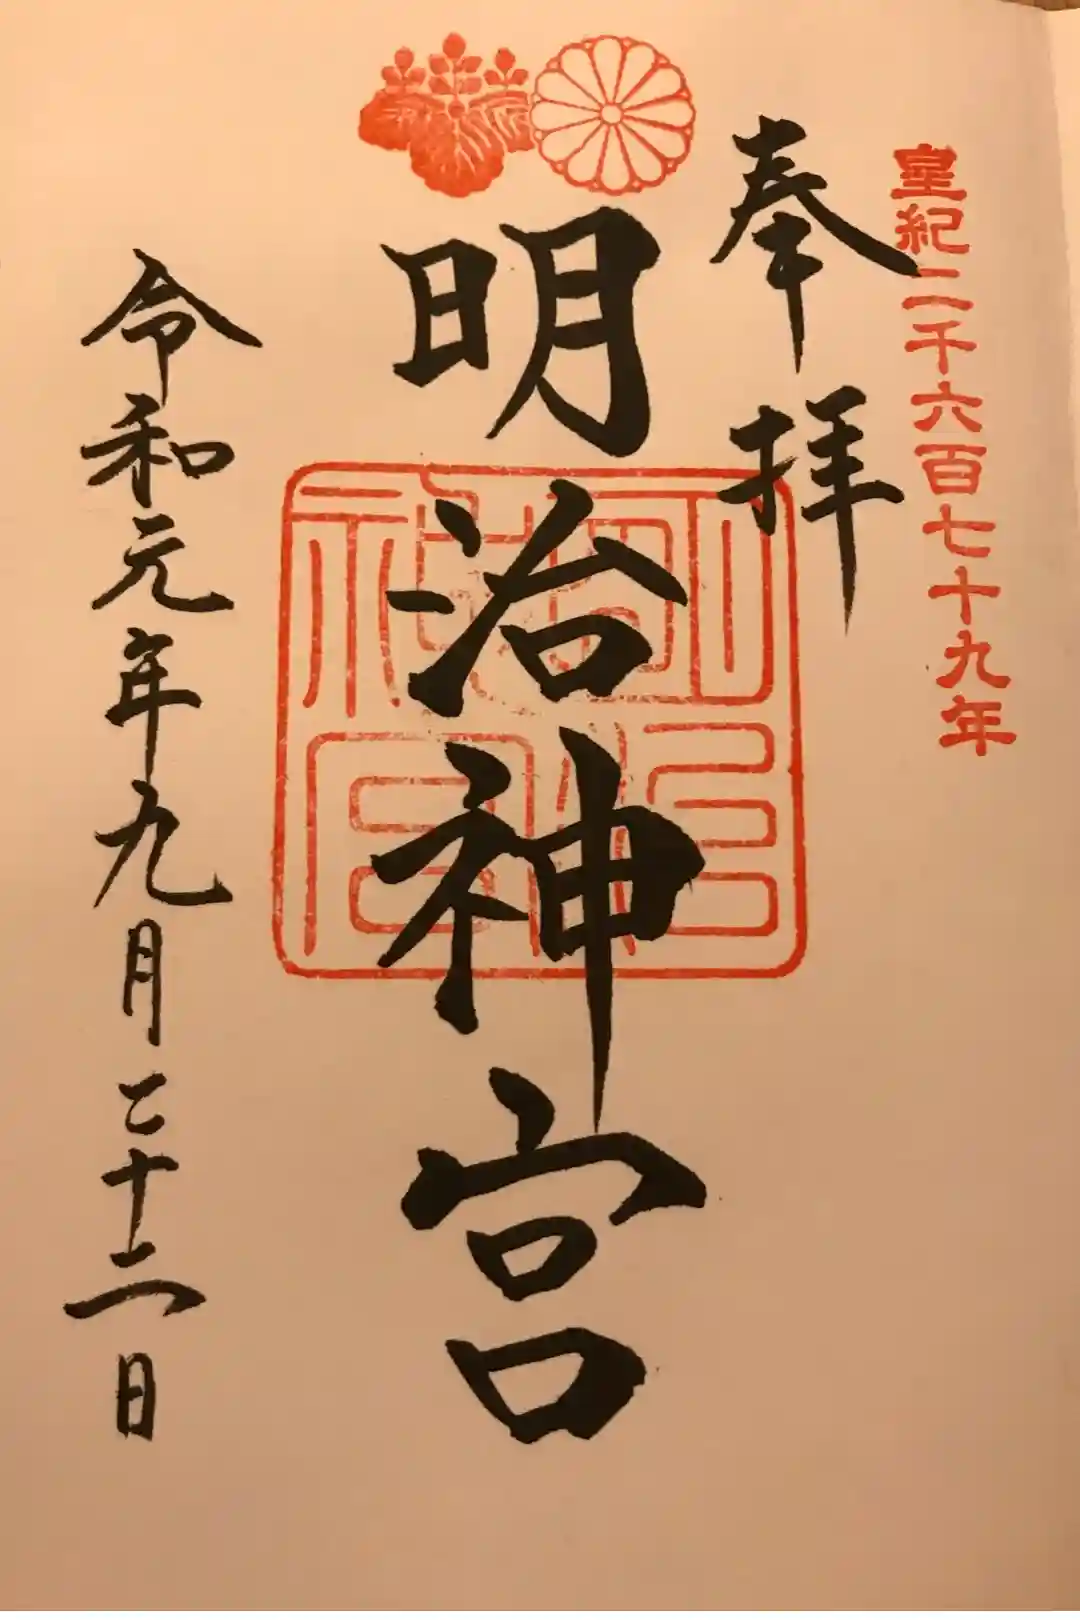 皇紀二千六百七十九年
奉拝
明治神宮
令和元年九月二十二日
明治神宮